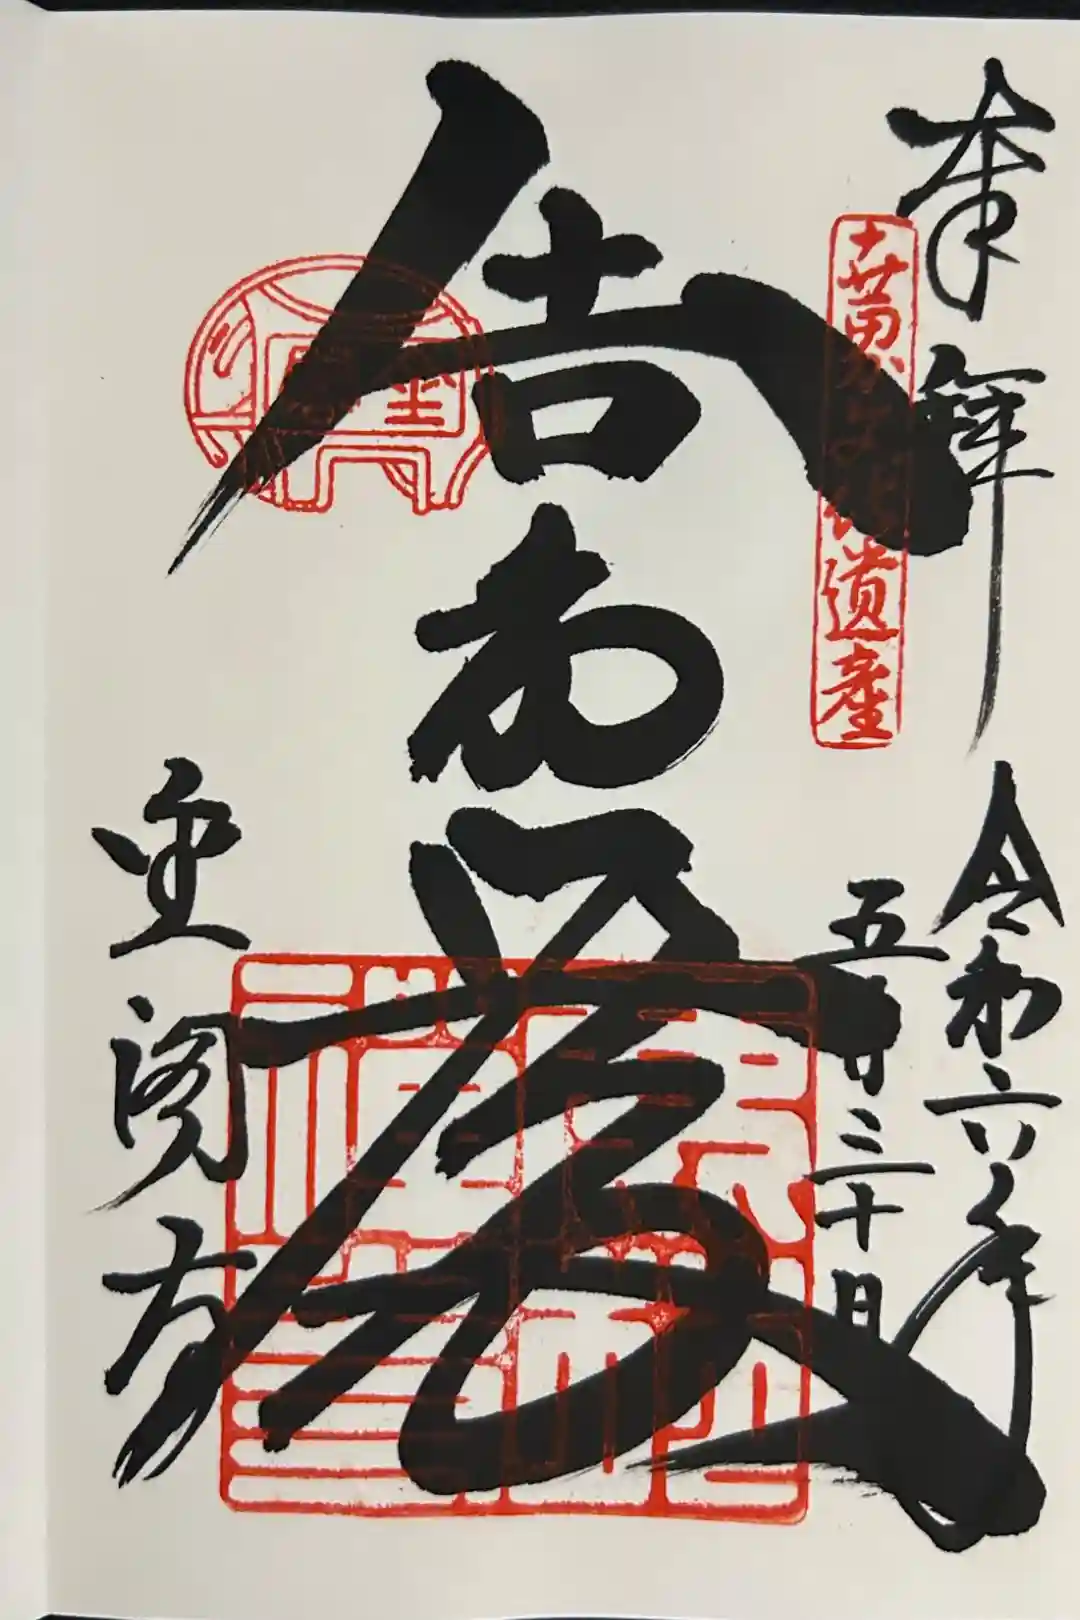 奉拝
世界文化遺産
令和六年
五月三十日
舎利殿
金閣寺